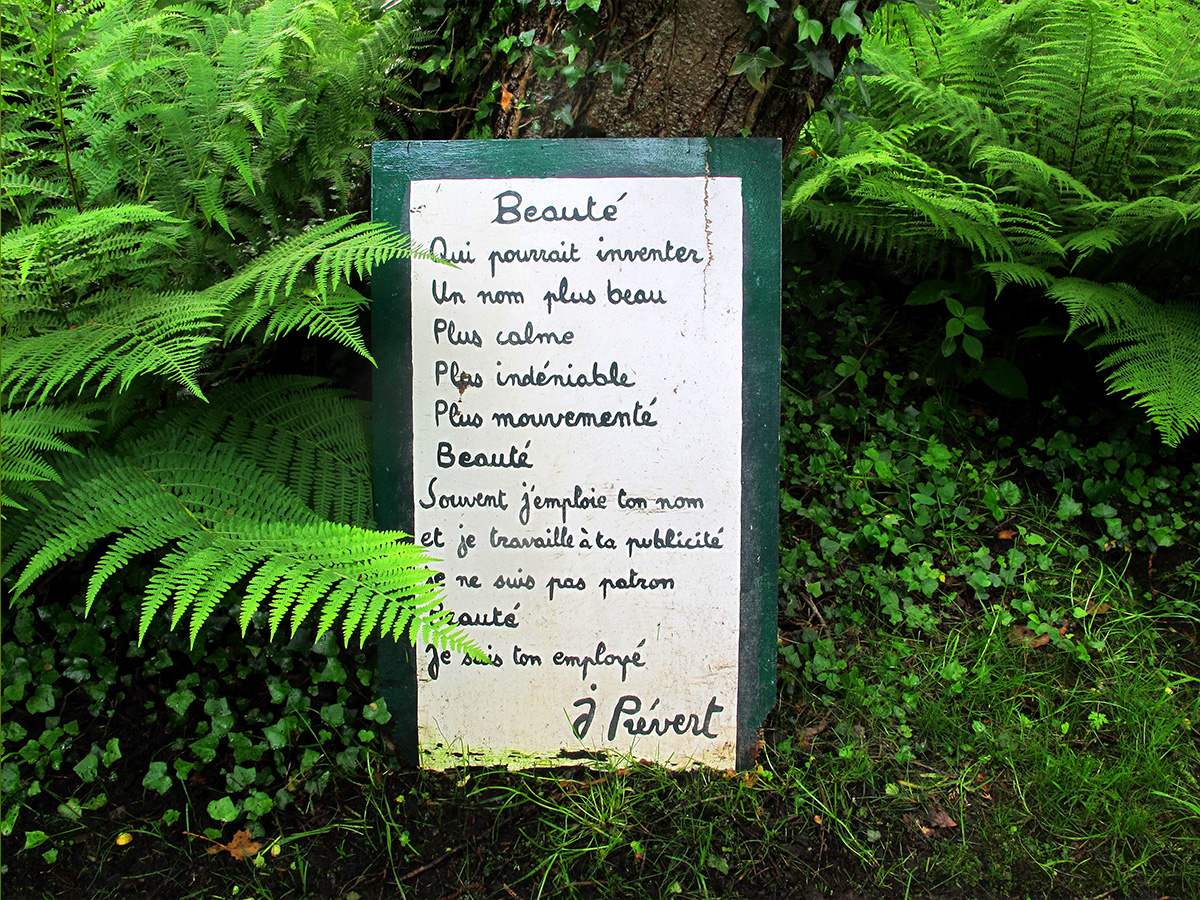 Beauté
Qui pourrait inventer
Un nom plus beau
Plus calme
Plus indéniable
Plus mouvementé
Beauté
Souvent j'emploie ton nom
et je travaille à ta publicité
je ne suis pas patron
Beauté
Je suis ton employé
J Prévert